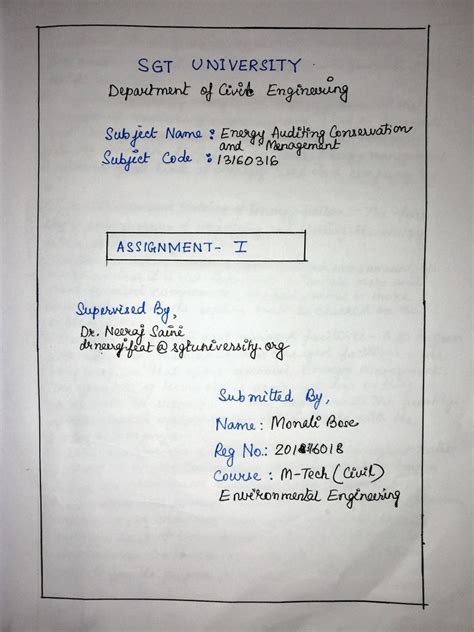 SGT UNIVERSITY
Department of Civil Engineering
Subject Name : Energy Auditing Conservation
and Management
Subject Code : 13160316
ASSIGNMENT- I
Supervised By,
Dr. Neeraj Saini
drneeraj.feat@sgtuniversity.org
Submitted By,
Name : Monali Bose
Reg No.:
Course : M-Tech (Civil)
Environmental Engineering